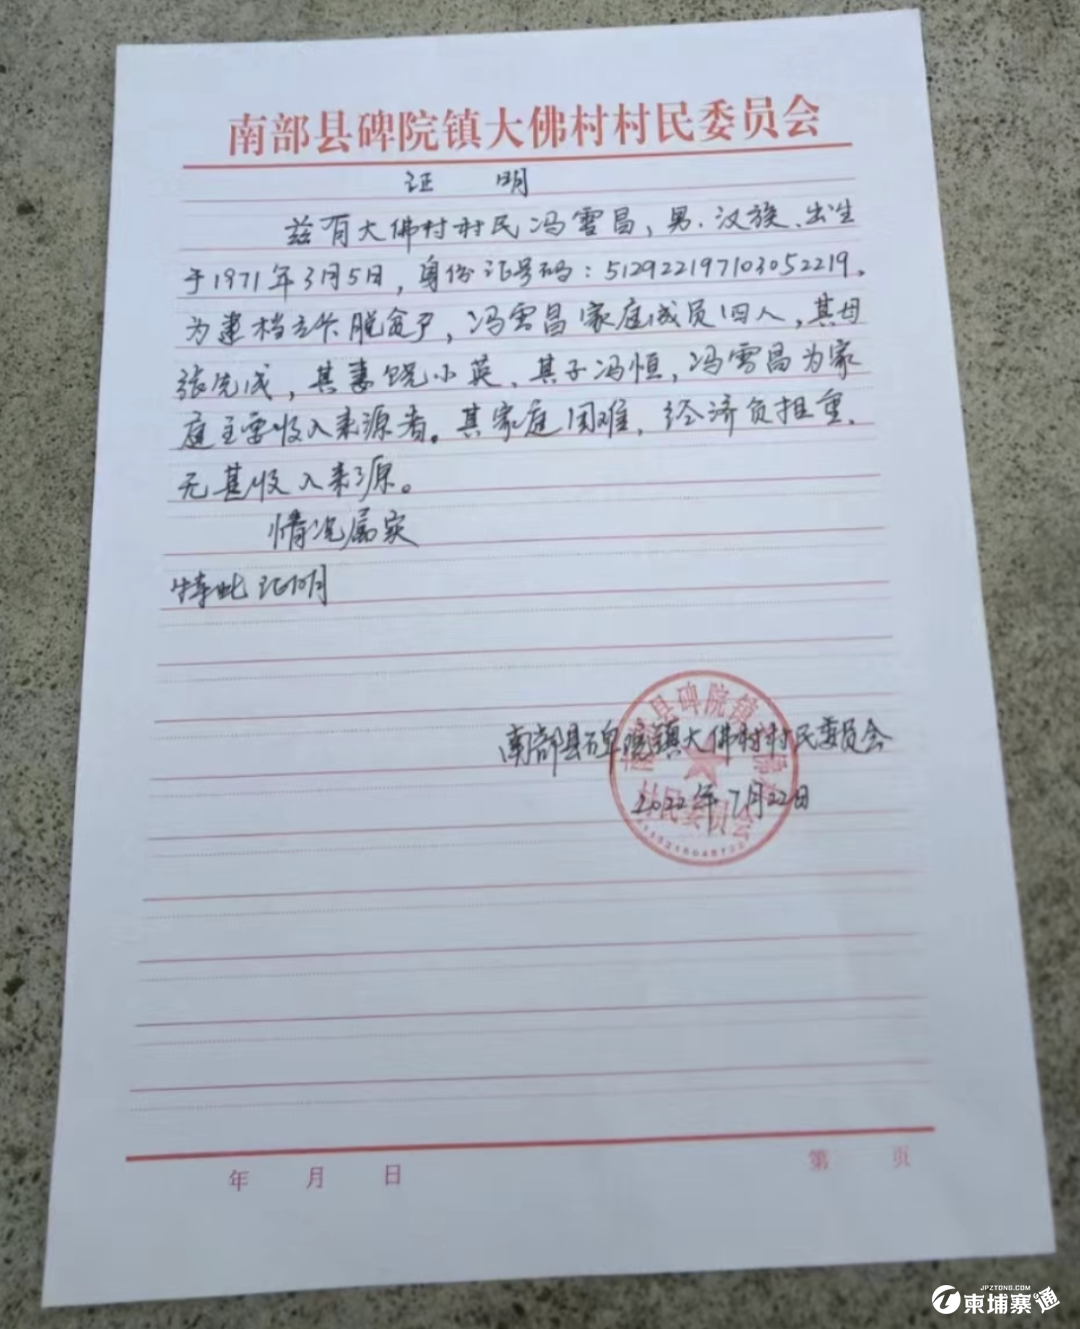 南部县碑院镇大佛村村民委员会
证 明
兹有大佛村村民冯雪昌，男、汉族、出生
于1971年3月5日，身份证号码：512922197103052219。
为建档立卡脱贫户，冯雪昌家庭成员四人，其母
张先成，其妻饶小英，其子冯恒，冯雪昌为家
庭主要收入来源者。其家庭困难，经济负担重，
无甚收入来源。
情况属实
特此证明
南部县碑院镇大佛村村民委员会
2022年7月22日
年 月 日
第 页
JPZTONG.COM
柬埔寨通